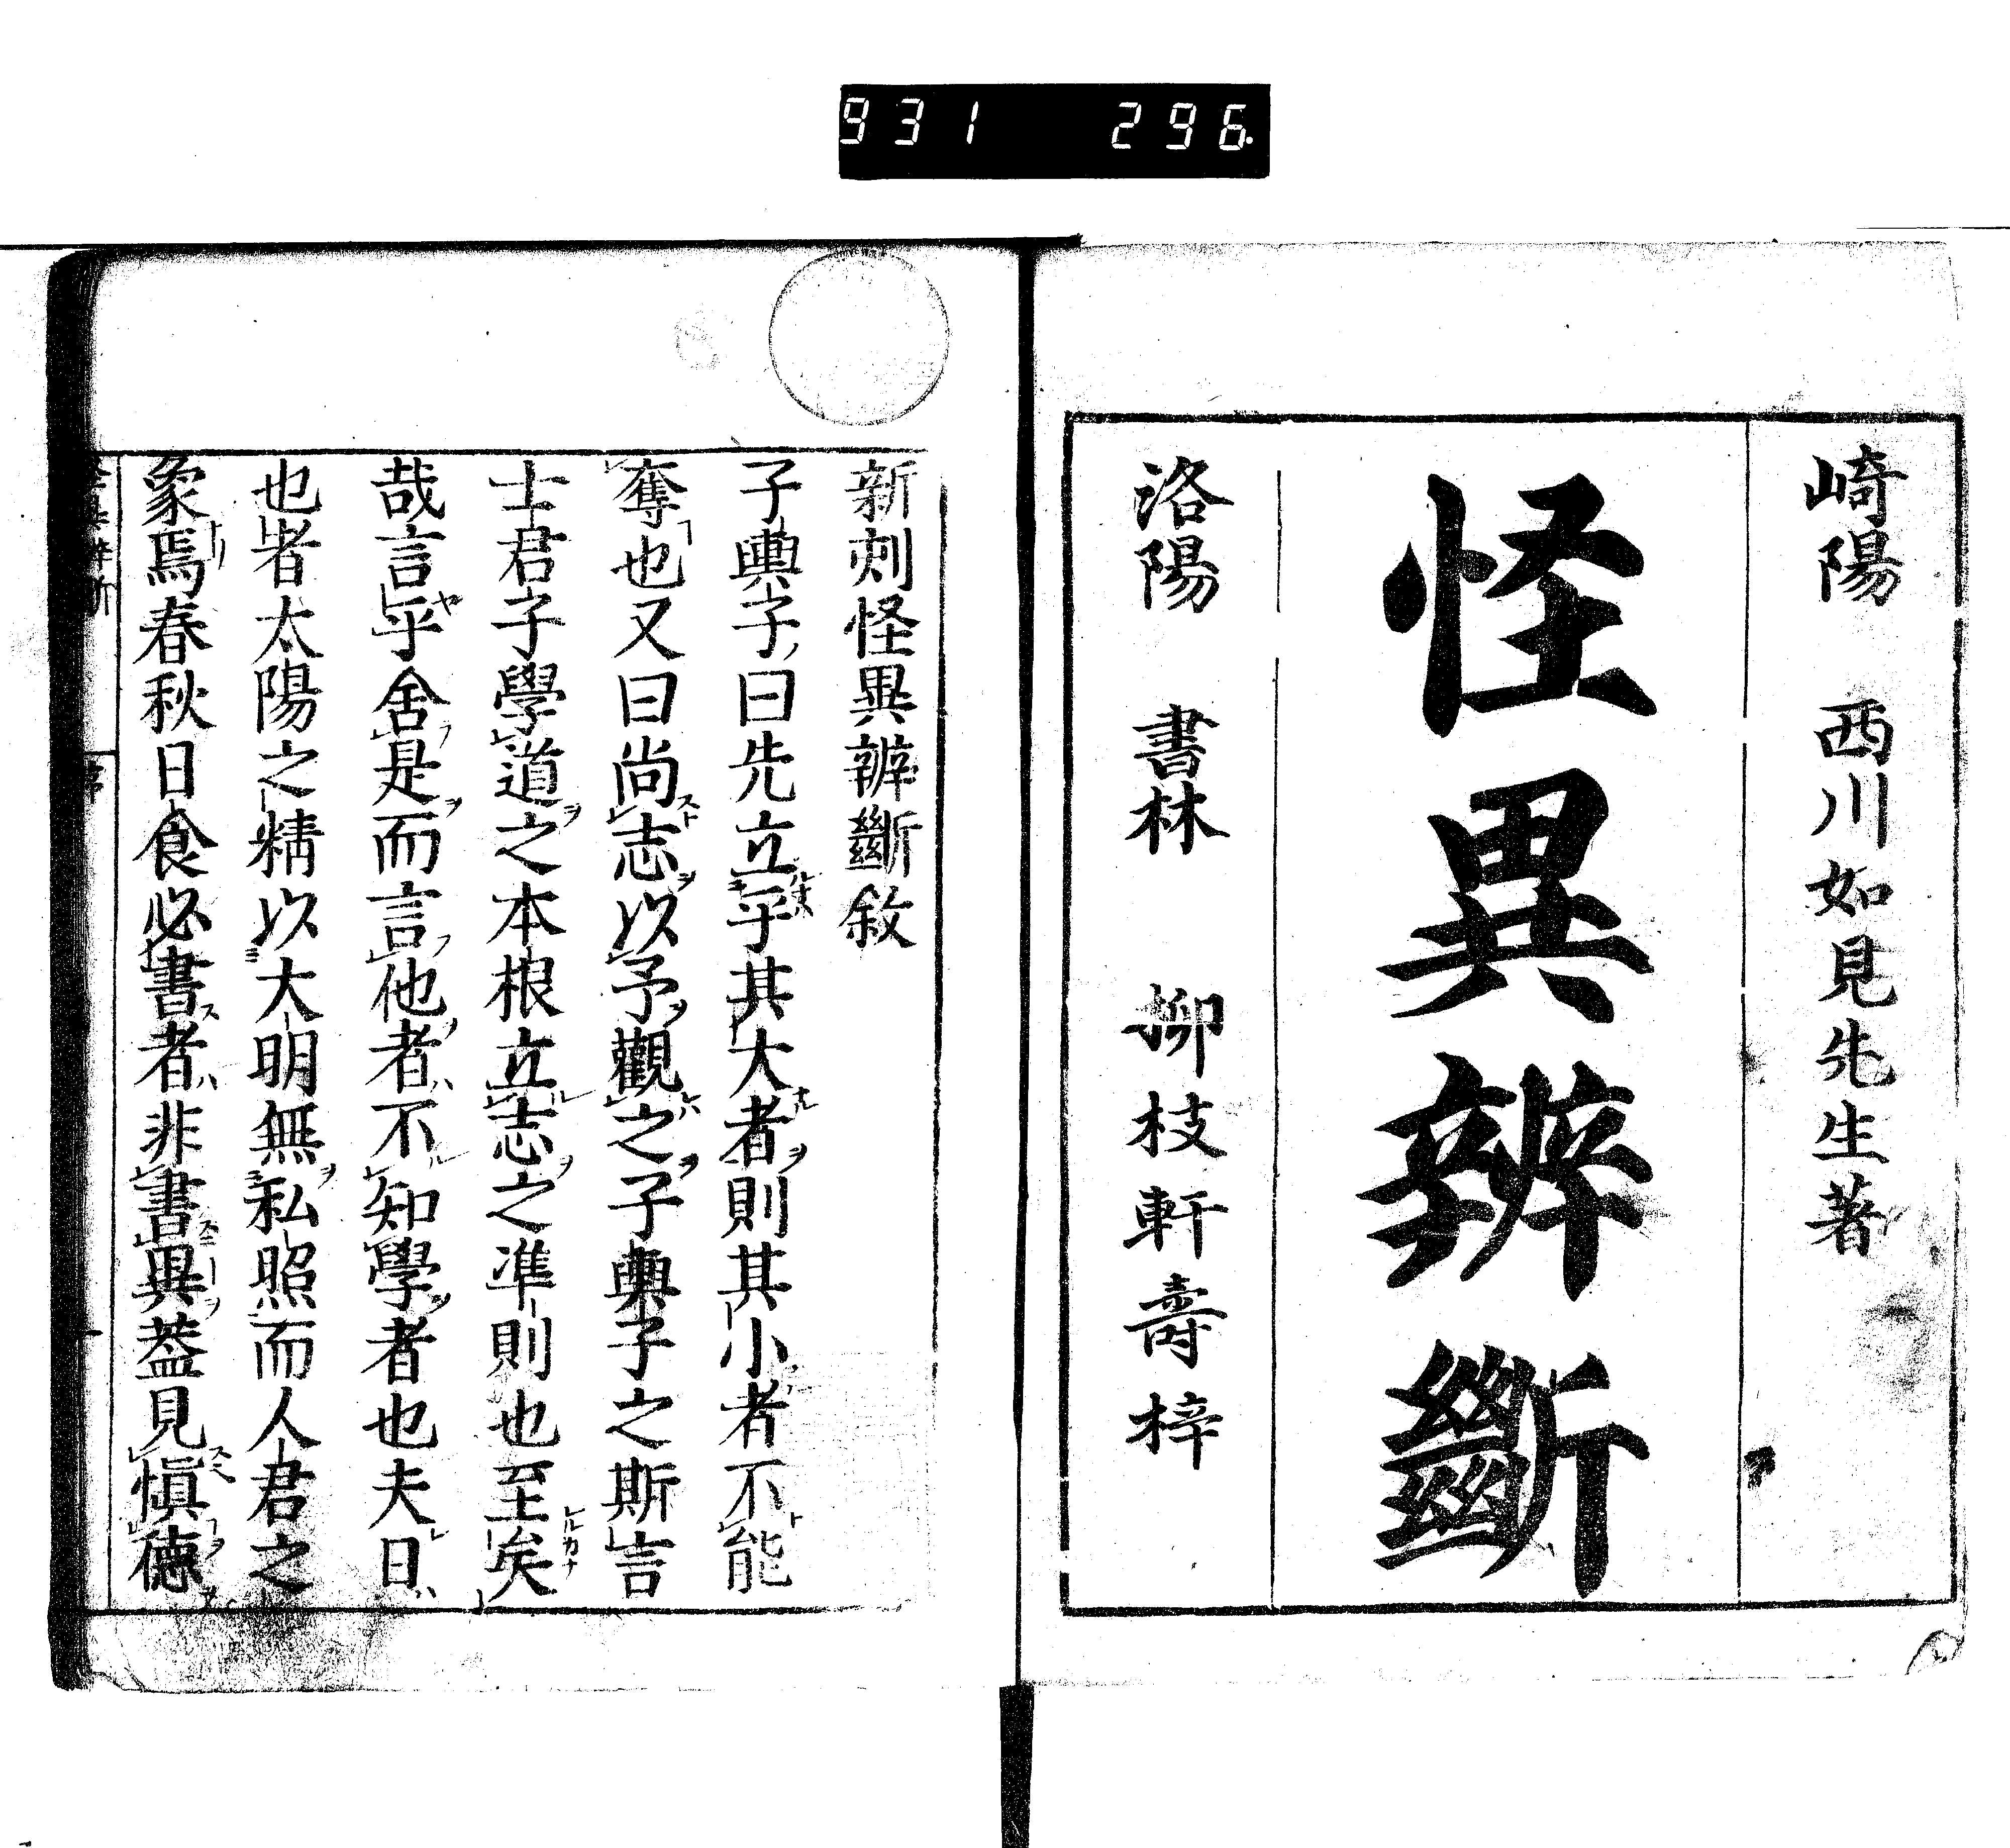 931 296
崎陽 西川如見先生著
怪異辨斷
洛陽 書林 柳枝軒壽梓
新刻怪異辨斷敘
子輿子曰先立乎其大者則其小者不能
奪也又曰尚志以予觀之子輿子之斯言
士君子學道之本根立志之準則也至矣
哉言乎舍是而言他者不知學者也夫日
也者太陽之精以大明無私照而人君之
象焉春秋日食必書者非書異葢見愼德